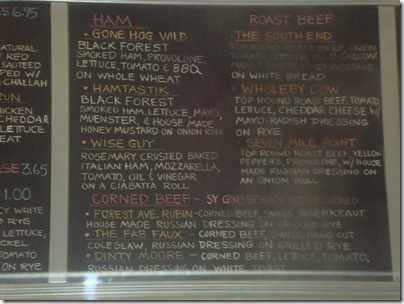 S 6.95
NATURAL
RED
SAUTEED
PED W/
CHALLAH
RUN
HICKEN
CHEDDAR
LETTUCE
EAT
ESE 3.65
1.00
CY WHITE
D RYE
LETTUCE,
CKEL
TOMATO
D ON RYE
HAM
• GONE HOG WILD
BLACK FOREST
SMOKED HAM, PROVOLONE,
LETTUCE, TOMATO & BBQ
ON WHOLE WHEAT
• HAMTASTIK
BLACK FOREST
SMOKED HAM, LETTUCE, MAYO,
MUENSTER, & HOUSE MADE
HONEY MUSTARD ON ONION ROLL
• WISE GUY
ROSEMARY CRUSTED BAKED
ITALIAN HAM, MOZZARELLA,
TOMATO, OIL & VINEGAR
ON A CIABATTA ROLL
ROAST BEEF
• THE SOUTH END
TOP ROUND ROAST BEEF, ONION
TOMATO, LETTUCE, CHEDDAR
MUSTARD
ON WHITE BREAD
• WHOLEEY COW
TOP ROUND ROAST BEEF, TOMATO
LETTUCE, CHEDDAR CHEESE W/
MAYO-RADISH DRESSING
ON RYE
• SEVEN MILE POINT
TOP ROUND ROAST BEEF, YELLOW
PEPPERS, PROVOLONE, W/ HOUSE
MADE RUSSIAN DRESSING ON
AN ONION ROLL
CORNED BEEF - SY GINSBERG'S HOUSE COOKED
• FOREST AVE. RUBIN - CORNED BEEF, SWISS, SAUERKRAUT,
HOUSE MADE RUSSIAN DRESSING ON GRILLED RYE
• THE FAB FAUX - CORNED BEEF, SWISS, HAND CUT
COLESLAW, RUSSIAN DRESSING ON GRILLED RYE
• DINTY MOORE - CORNED BEEF, LETTUCE, TOMATO,
RUSSIAN DRESSING ON WHITE TOAST